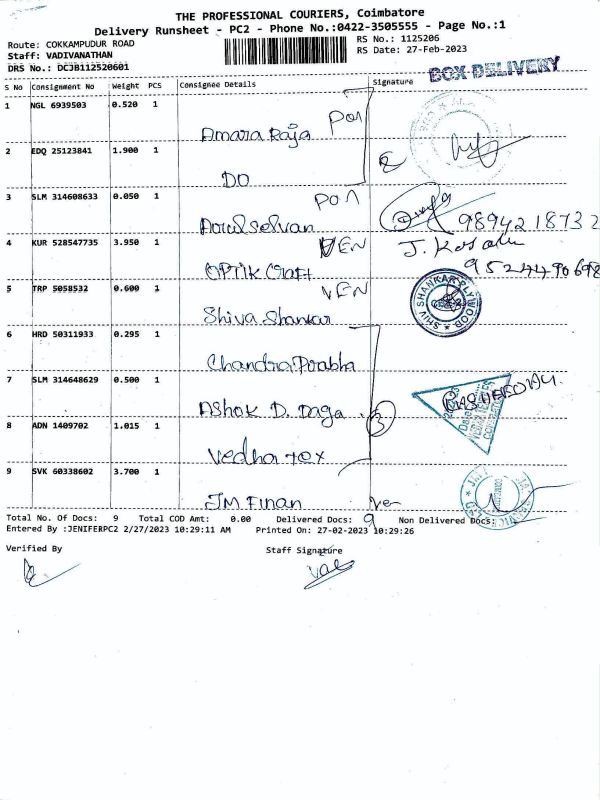 THE PROFESSIONAL COURIERS, Coimbatore
Delivery Runsheet - PC2 - Phone No.:0422-3505555 - Page No.:1
Route: COKKAMPUDUR ROAD
RS No.: 1125206
Staff: VADIVANATHAN
RS Date: 27-Feb-2023
DRS No.: DCJB112520601
BOX DELIVERY
S No Consignment No Weight PCS Consignee Details Signature
1 NGL 6939503 0.520 1
Pon
Amara Raja
2 EDQ 25123841 1.900 1
DO
3 SLM 314608633 0.050 1
Pon
Arulselvan
9894218732
4 KUR 528547735 3.950 1
VEN
OPTIK Craft
5 TRP 5058532 0.600 1
VEN
Shiva Shankar
SHIV SHANKAR PLYWOOD
6 HRD 50311933 0.295 1
Chandra Prabha
7 SLM 314648629 0.500 1
Ashok D. Daga
3
8 ADN 1409702 1.015 1
Vedha Tex
9 SVK 60338602 3.700 1
JM Finan
Ven
Total No. Of Docs: 9 Total COD Amt: 0.00 Delivered Docs: 9 Non Delivered Docs:
Entered By :JENIFERPC2 2/27/2023 10:29:11 AM Printed On: 27-02-2023 10:29:26
Verified By Staff Signature